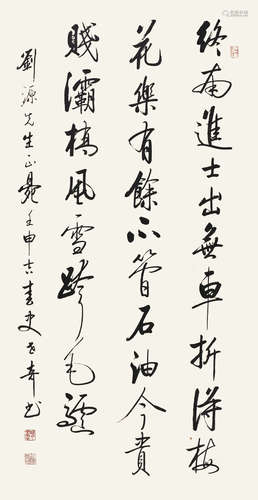 终南進士出無車折得梅
花樂有餘不管石油今貴
賤灞橋風雪跨毛驢
劉源先生正是壬申吉春史老奇书